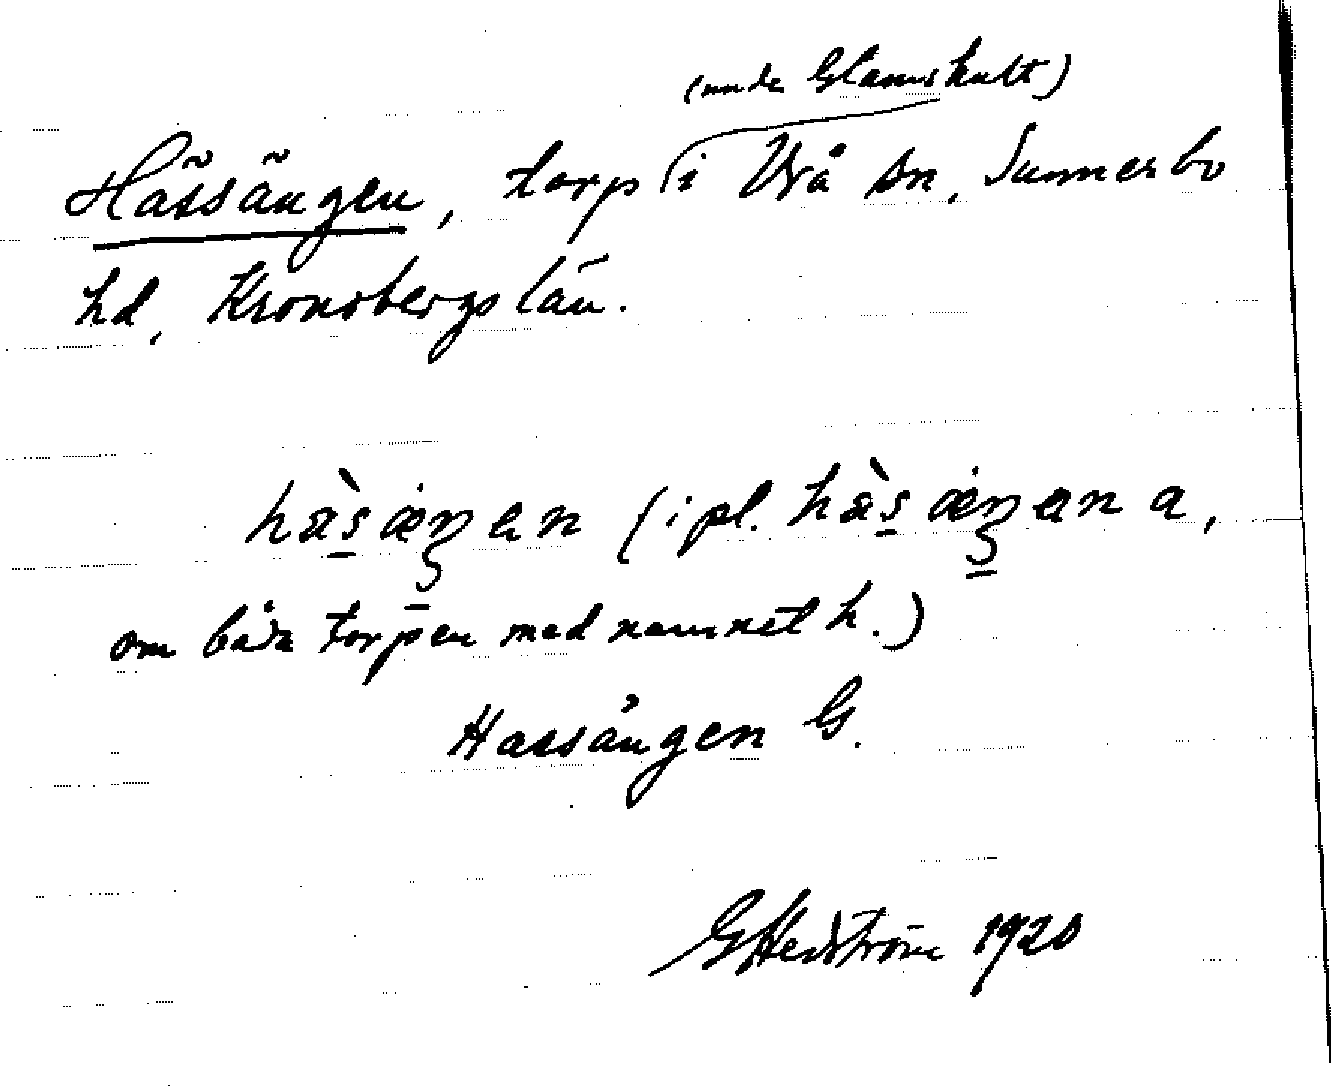 (unde Glamshult)
Hässängen, torp i Vrå sn, Sunnerbo
hd, Kronobergs län.
hæ̀s̠æŋen (i pl. hæ̀s̠æŋena,
om båda torpen med namnet h.)
Hassängen G.
G Hedström 1920